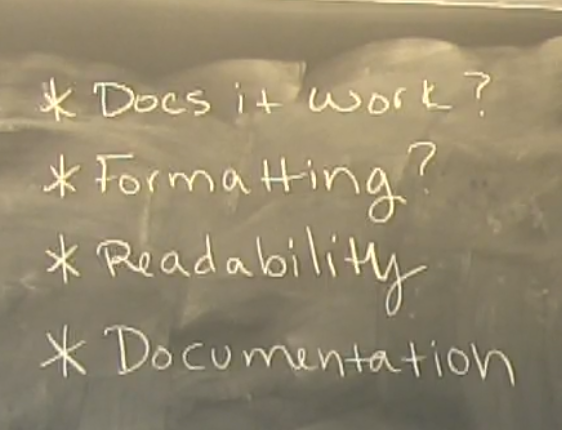 * Does it work?
* Formatting?
* Readability
* Documentation